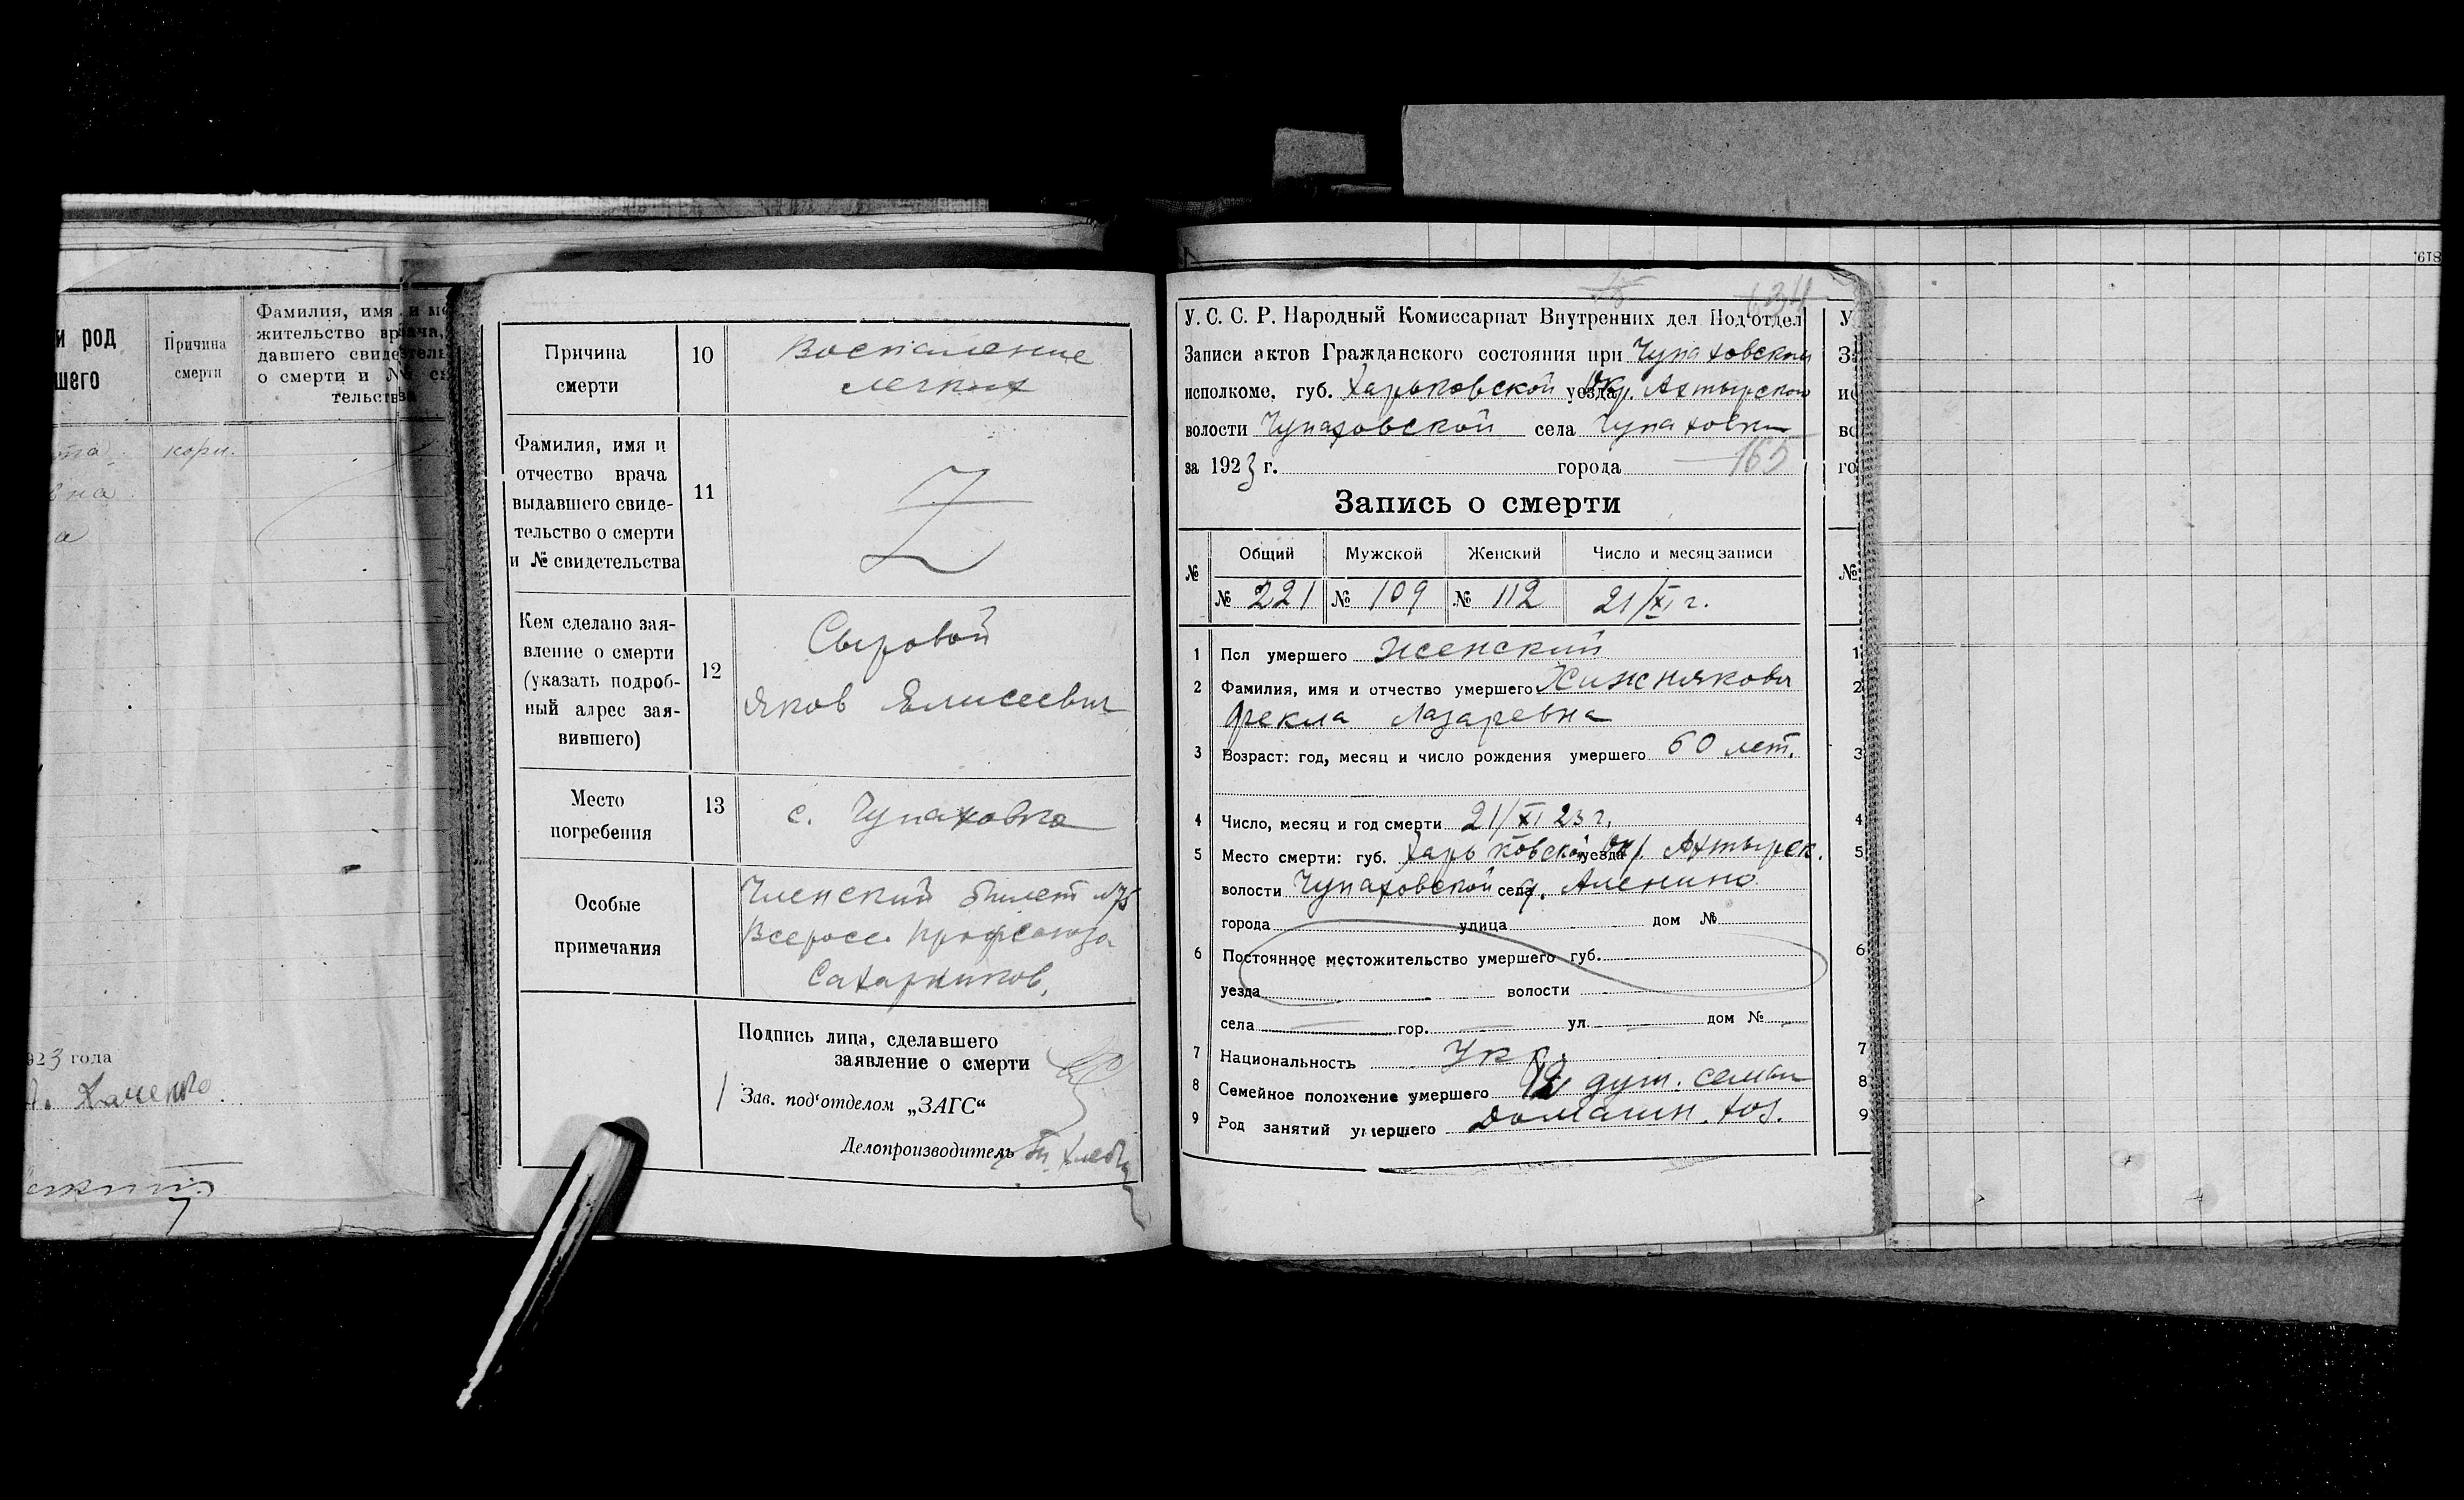 и род
шего
Причина
смерти
Фамилия, имя и ме
жительство врача,
давшего свидетель
о смерти и № св
тельства
на
а
923 года
Причина
смерти
10
Воспаление
легких
Фамилия, имя и
отчество врача
выдавшего свиде-
тельство о смерти
и № свидетельства
11
Z
Кем сделано зая-
вление о смерти
(указать подроб-
ный адрес зая-
вившего)
12
Сыровой
Яков Елисеевич
Место
погребения
13
с. Чупаховка
Особые
примечания
Членский билет №75
Всеросс. профсоюза
Сахарников.
Подпись лица, сделавшего
заявление о смерти
Зав. под'отделом „ЗАГС“
Делопроизводитель
134
У. С. С. Р. Народный Комиссариат Внутренних дел Под'отдел
Записи актов Гражданского состояния при Чупаховском
исполкоме, губ. Харьковской уезда Окр. Ахтырской
волости Чупаховской села Чупаховки
за 1923 г. города
165
Запись о смерти
№
Общий Мужской Женский Число и месяц записи
№ 221 № 109 № 112 21/XI г.
1 Пол умершего женский
2 Фамилия, имя и отчество умершего Хижнякова
Фекла Лазаревна
3 Возраст: год, месяц и число рождения умершего 60 лет.
4 Число, месяц и год смерти 21/XI 23 г.
5 Место смерти: губ. Харьковской уезда Окр. Ахтырск.
волости Чупаховской села д. Аленино
города улица дом №
6 Постоянное местожительство умершего губ.
уезда волости
села гор. ул. дом №
7 Национальность Укр.
8 Семейное положение умершего душ. семьи
9 Род занятий умершего домашн. хоз.
У
За
ис
во
го
№
1
2
3
4
5
6
7
8
9
819